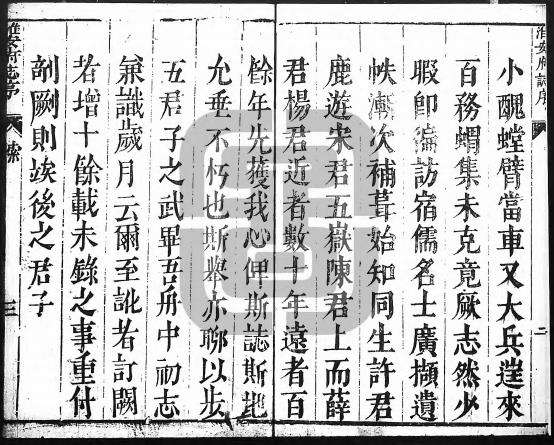 淮安府誌序
二
小醜螳臂當車又大兵遝來
百務蝟集未克竟厥志然少
暇卽徧訪宿儒名士廣擷遺
帙漸次補葺始知同生許君
鹿遊宋君五嶽陳君上而薛
君楊君近者數十年遠者百
餘年先獲我心俾斯誌斯地
允垂不朽也斯舉亦聊以步
五君子之武畢吾舟中初志
兼識歲月云爾至訛者訂闕
者增十餘載未錄之事重付
剞劂則竢後之君子
淮安府誌序
三